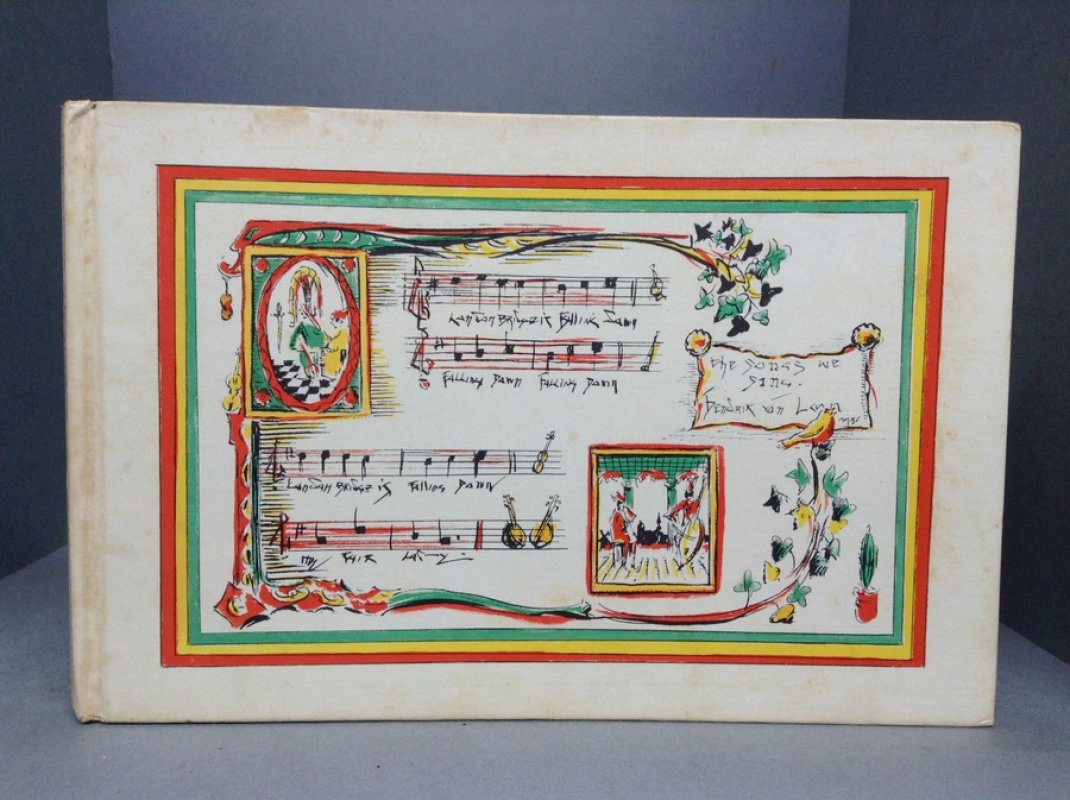 London Bridge is Falling Down
Falling Down Falling Down
London Bridge is Falling Down
My Fair Lady.
the songs we
sing.
Hendrik van Loon
1936